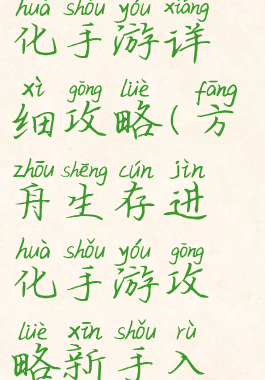 huà shǒu yóu xiáng
化手游详
xì gōng lüè fāng
细攻略(方
zhōu shēng cún jìn
舟生存进
huà shǒu yóu gōng
化手游攻
lüè xīn shǒu rù
略新手入